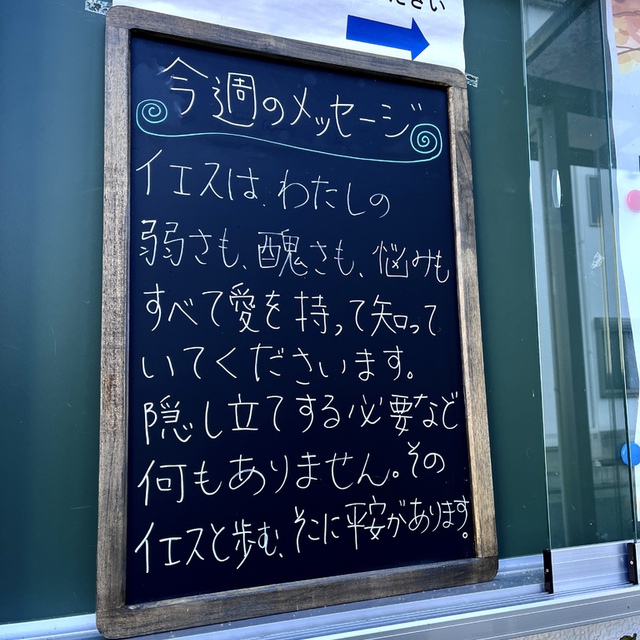 ださい
今週のメッセージ
イエスは、わたしの
弱さも、醜さも、悩みも
すべて愛を持って知って
いてくださいます。
隠し立てする必要など
何もありません。その
イエスと歩む、そこに平安があります。